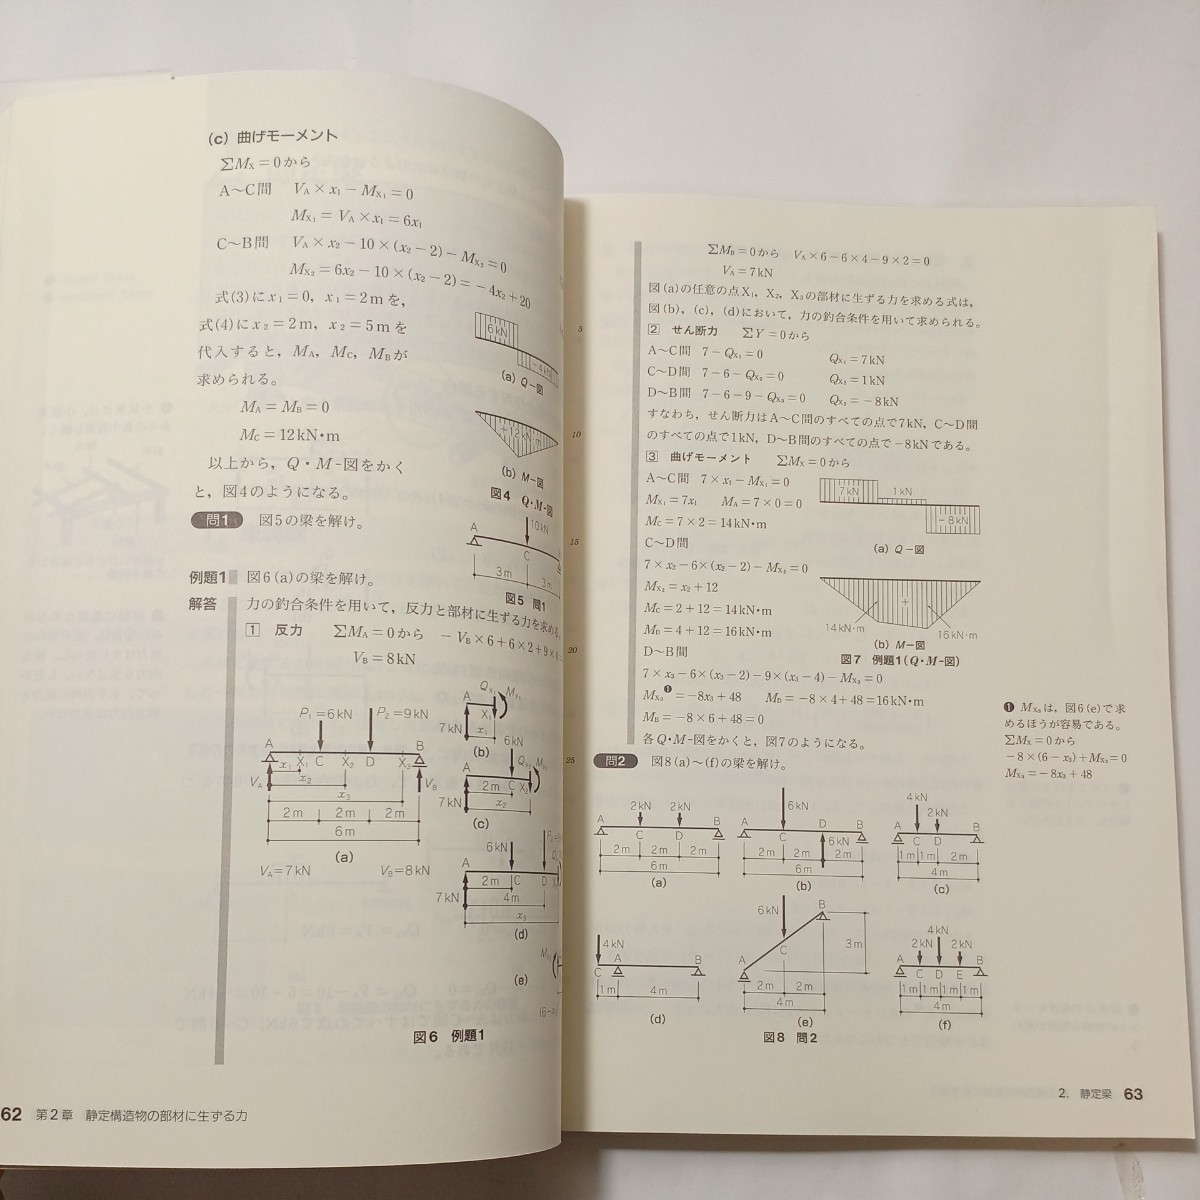 (c) 曲げモーメント
ΣMx＝0から
A〜C間　VA×x1－Mx1＝0
Mx1＝VA×x1＝6x1
C〜B間　VA×x2－10×(x2－2)－Mx2＝0
Mx2＝6x2－10×(x2－2)＝－4x2＋20
式(3)にx1＝0，x1＝2mを，
式(4)にx2＝2m，x2＝5mを
代入すると，MA，MC，MBが
求められる。
MA＝MB＝0
MC＝12kN・m
以上から，Q・M-図をかく
と，図4のようになる。
6kN
－4kN
(a) Q－図
＋12kN・m
(b) M－図
図4　Q・M-図
問1　図5の梁を解け。
10kN
A
C
3m　3m
図5　問1
例題1　図6(a)の梁を解け。
解答　力の釣合条件を用いて，反力と部材に生ずる力を求める。
1　反力　ΣMA＝0から　－VB×6＋6×2＋9×4＝
VB＝8kN
P1＝6kN　P2＝9kN
A　X1　C　X2　D　X3　B
VA　x1　VB
x2
x3
2m　2m　2m
6m
(a)
VA＝7kN　VB＝8kN
A　Qx1　Mx1
X1
7kN　x1
(b)
6kN
A　Qx2　Mx2
2m　C　X2
7kN　x2
(c)
6kN　P2＝
A
2m　C　D
7kN　4m
x3
(d)
(e)
図6　例題1
62　第2章　静定構造物の部材に生ずる力
5
10
15
20
25
ΣMB＝0から　VA×6－6×4－9×2＝0
VA＝7kN
図(a)の任意の点X1，X2，X3の部材に生ずる力を求める式は，
図(b)，(c)，(d)において，力の釣合条件を用いて求められる。
2　せん断力　ΣY＝0から
A〜C間　7－Qx1＝0　Qx1＝7kN
C〜D間　7－6－Qx2＝0　Qx2＝1kN
D〜B間　7－6－9－Qx3＝0　Qx3＝－8kN
すなわち，せん断力はA〜C間のすべての点で7kN，C〜D間
のすべての点で1kN，D〜B間のすべての点で－8kNである。
3　曲げモーメント　ΣMx＝0から
A〜C間　7×x1－Mx1＝0
Mx1＝7x1　MA＝7×0＝0
MC＝7×2＝14kN・m
C〜D間
7×x2－6×(x2－2)－Mx2＝0
Mx2＝x2＋12
MC＝2＋12＝14kN・m
MD＝4＋12＝16kN・m
D〜B間
7×x3－6×(x3－2)－9×(x3－4)－Mx3＝0
Mx3❶＝－8x3＋48　MD＝－8×4＋48＝16kN・m
MB＝－8×6＋48＝0
各Q・M-図をかくと，図7のようになる。
7kN　1kN
－8kN
(a) Q－図
＋
14kN・m　16kN・m
(b) M－図
図7　例題1(Q・M-図)
❶ Mx3は，図6(e)で求
めるほうが容易である。
ΣMx＝0から
－8×(6－x3)＋Mx3＝0
Mx3＝－8x3＋48
問2　図8(a)〜(f)の梁を解け。
2kN　2kN
A　C　D　B
2m　2m　2m
6m
(a)
6kN
A　C　D　B
6kN
2m　2m　2m
6m
(b)
4kN
2kN
A　C　D　B
1m　1m　2m
4m
(c)
4kN
C　A　B
1m　4m
(d)
6kN　B
C　3m
A
2m　2m
4m
(e)
4kN
2kN　2kN
A　C　D　E　B
1m　1m　1m　1m
4m
(f)
図8　問2
2. 静定梁　63